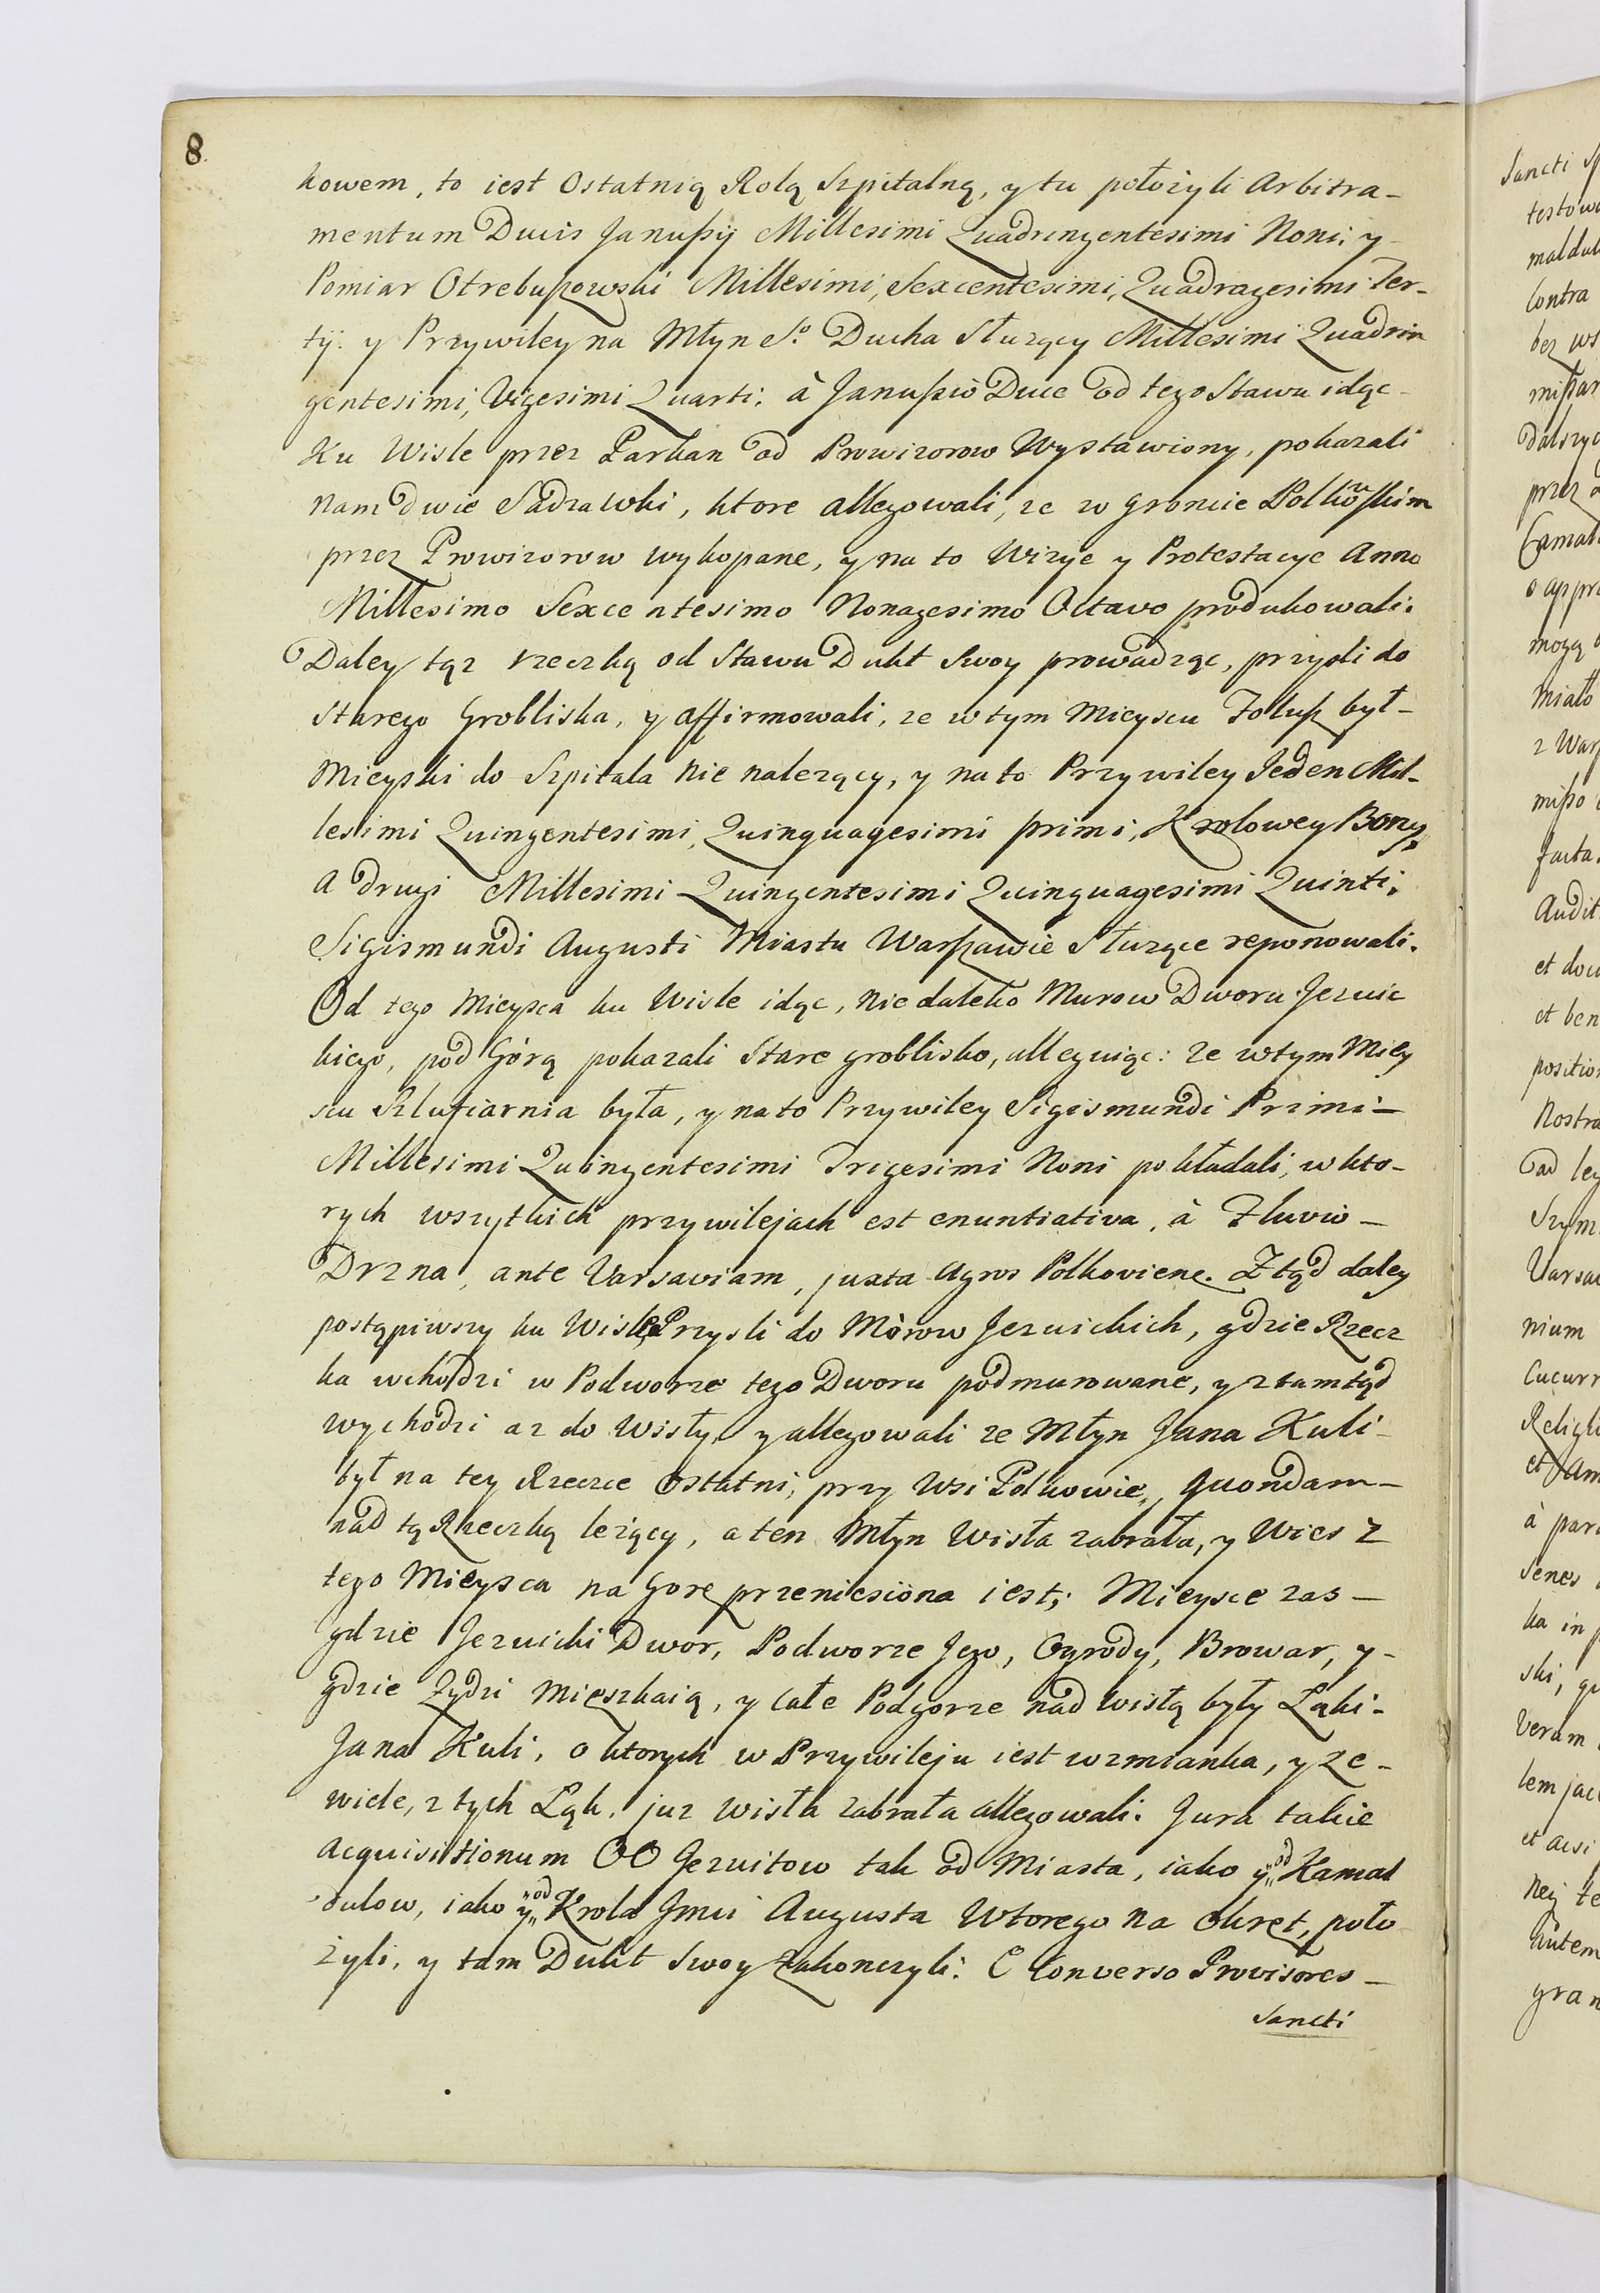 8.
kowem, to iest Ostatnią Rolą Szpitalną, y tu położyli Arbitra-
mentum Ducis Janußij Millesimi Quadringentesimi Noni; y-
Pomiar Otrebußowski Millesimi, Sexcentesimi, Quadragesimi Ter-
tij. y Przywiley na Młyn S.º Ducha Służący Millesimi Quadrin
gentesimi, Vigesimi Quarti; à Janußio Duce od tego Stawu idąc-
Ku Wisle przez Parkan od Prowizorow Wystawiony, pokazali
nam dwie Sadzawki, ktore allegowali, ze w groncie Polkowskim
przez Prowizorow wykopane, y na to Wizye y Protestacye Anno
Millesimo Sexcentesimo Nonagesimo Octavo produkowali.
Daley tąz rzeczką od Stawu Dukt Swoy prowadząc, przysli do
Starego Grobliska, y affirmowali, ze w tym Mieyscu Foluß był-
Mieyski do Szpitala nie nalezący, y na to Przywiley Jeden Mil-
lesimi Quingentesimi, Quinquagesimi primi, Krolowey Bony,
a drugi Millesimi Quingentesimi Quinquagesimi Quinti,
Sigismundi Augusti Miastu Warßawie Służące reponowali.
Od tego Mieysca ku Wisle idąc, nie daleko Murow Dworu Jezuic
kiego, pod Górą pokazali Stare groblisko, alleguiąc: ze w tym Miey
scu Szlufiarnia była, y na to Przywiley Sigismundi Primi-
Millesimi Quingentesimi Trigesimi Noni pokładali, w kto-
rych wszytkich przywilejach est enuntiativa, à Fluvio-
Drzna, ante Varsaviam, juxta Agros Polkoviene. Ztąd daley
postąpiwszy ku Wisle, Przysli do Mòrow Jezuickich, gdzie Rzecz
ka wchodzi w Podworze tego Dworu podmurowane, y ztamtąd
wychodzi az do Wisły, y allegowali ze Młyn Jana Kuli-
był na tey Rzeczce Ostatni, przy Wsi Polkowie, quondam-
nad tą Rzeczką leżący, a ten Młyn Wisła zabrała, y Wies z
tego Mieysca na Gorę przeniesiona iest; Mieysce zas-
gdzie Jezuicki Dwor, Podworze Jego, Ogrody, Browar, y-
gdzie Żydzi Mieszkaią, y całe Podgorze nad Wisłą były Ląki-
Jana Kuli, o ktorych w Przywileju iest wzmianka, y ze-
wiele, z tych Ląk, juz Wisła zabrała allegowali. Jura takie
acquisitionum OO Jezuitow tak od Miasta, iako y „od” Kamal
dulow, iako y „od” Krola Jmci Augusta Wtorego na Okręt, poło
żyli, y tam Dukt Swoy zakonczyli. E Converso Provisores-
Sancti